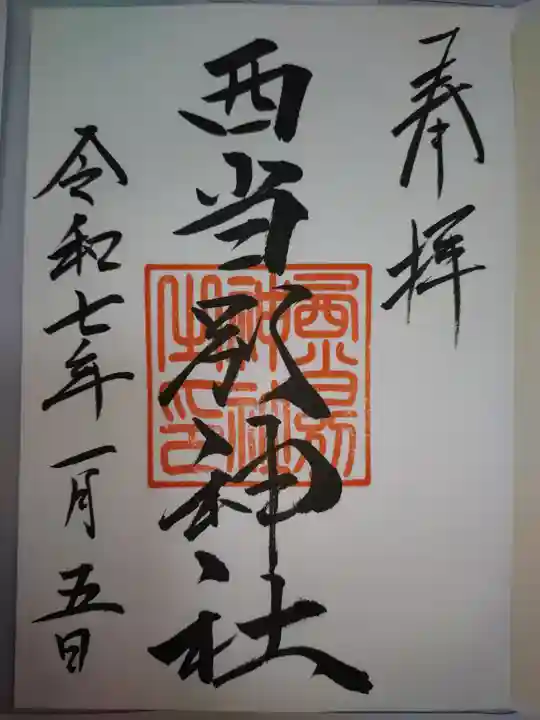 奉拝
西当別神社
西当別
神社
之印
令和七年一月五日